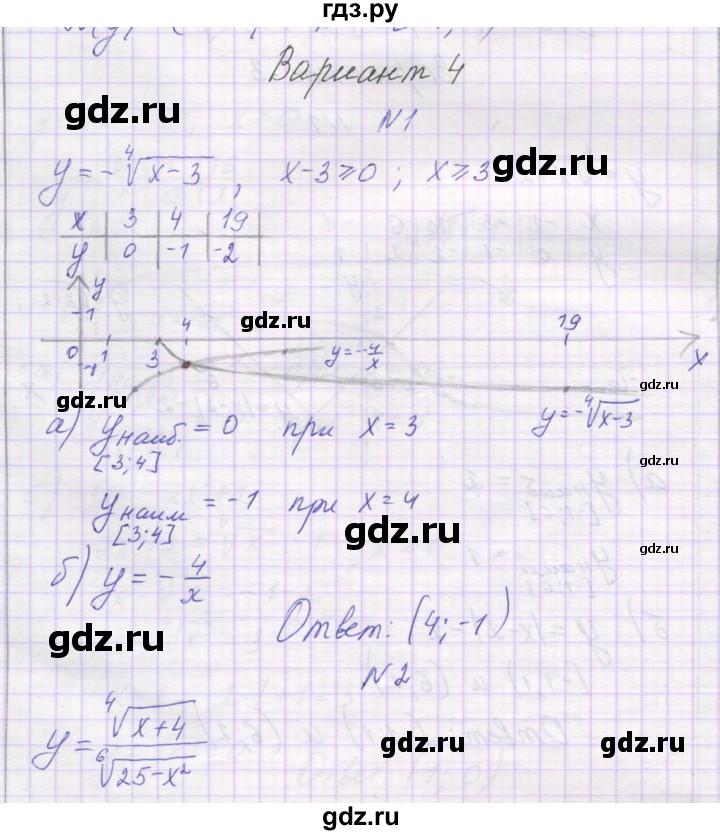 гдз.ру
Вариант 4
N1
y = -⁴√(x-3), x-3⩾0; x⩾3
x | 3 | 4 | 19
y | 0 | -1 | -2
y
1
4
19
0
-1
1
3
y=-4/x
x
y=-⁴√(x-3)
а) yнаиб. = 0 при x = 3
[3;4]
yнаим = -1 при x = 4
[3;4]
б) y = - 4/x
Ответ: (4;-1)
N2
y = ⁴√(x+4) / ⁶√(25-x²)
gdz.ru
gdz.ru
gdz.ru
gdz.ru
gdz.ru
gdz.ru
gdz.ru
gdz.ru
gdz.ru
gdz.ru
gdz.ru
gdz.ru
gdz.ru